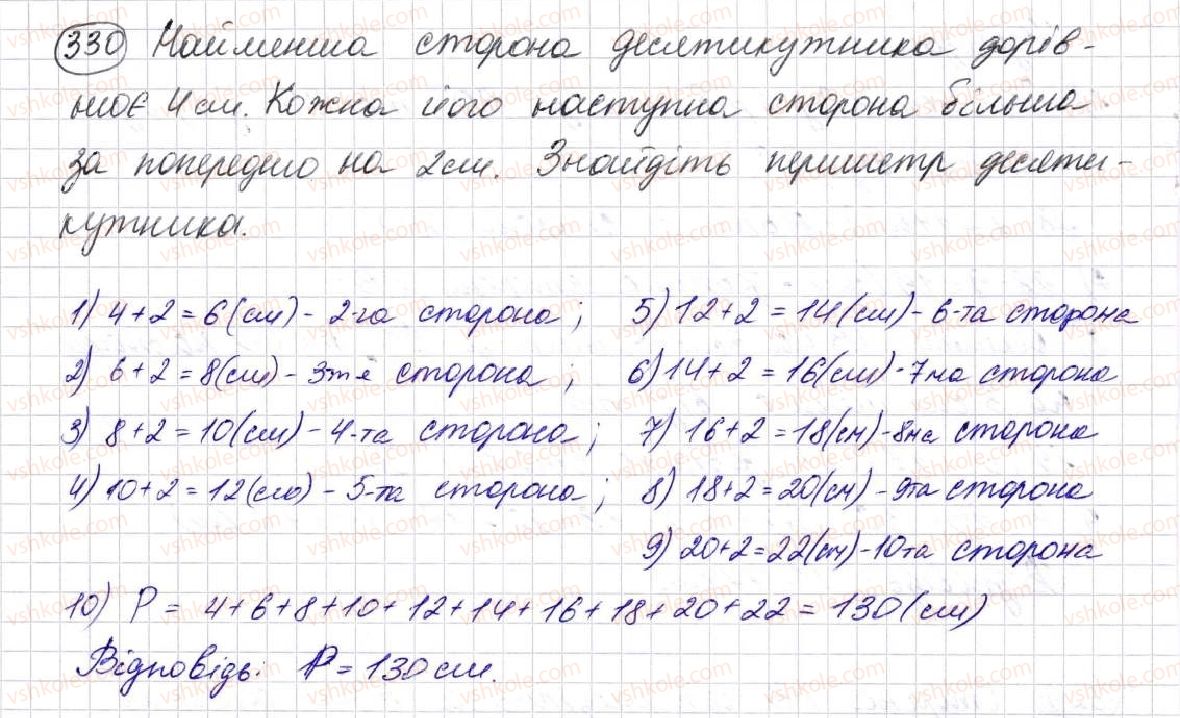 330 Найменша сторона десятикутника дорів-
нює 4 см. Кожна його наступна сторона більша
за попередню на 2 см. Знайдіть периметр десяти-
кутника.
1) 4+2=6(см) - 2-га сторона;
2) 6+2=8(см) - 3тя сторона;
3) 8+2=10(см) - 4-та сторона;
4) 10+2=12(см) - 5-та сторона;
5) 12+2=14(см) - 6-та сторона
6) 14+2=16(см) - 7ма сторона
7) 16+2=18(см) - 8ма сторона
8) 18+2=20(см) - 9та сторона
9) 20+2=22(см) - 10та сторона
10) P = 4+6+8+10+12+14+16+18+20+22=130(см)
Відповідь: P=130 см.